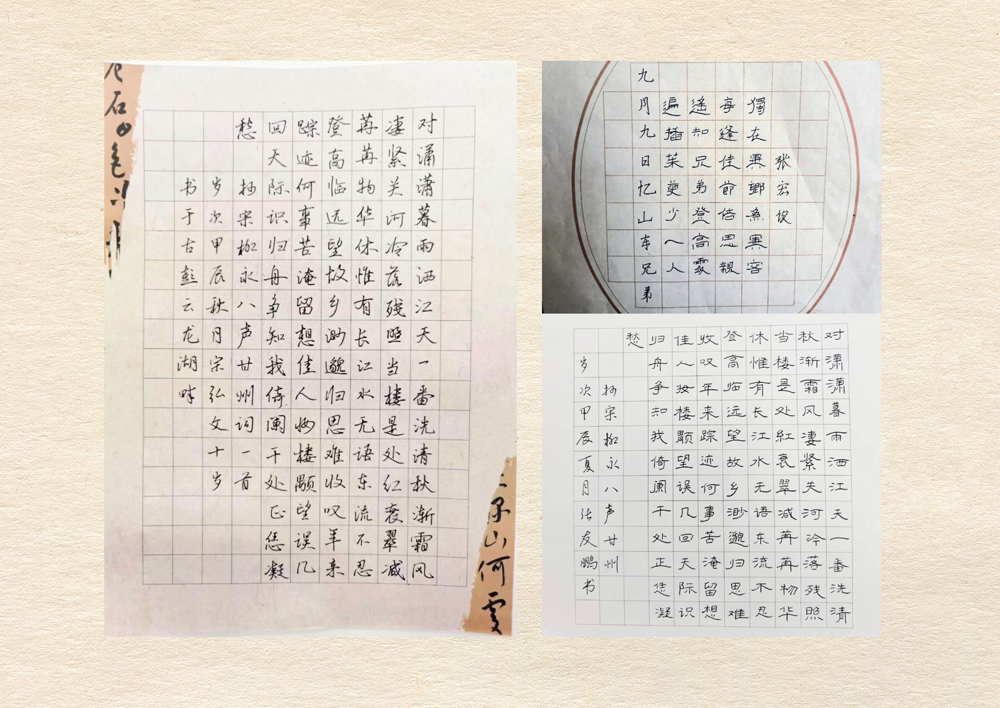 对潇潇暮雨洒江天一番洗清秋渐霜风
凄紧关河冷落残照当楼是处红衰翠减
苒苒物华休惟有长江水无语东流不忍
登高临远望故乡渺邈归思难收叹年来
踪迹何事苦淹留想佳人妆楼颙望误几
回天际识归舟争知我倚阑干处正恁凝
愁 抄宋柳永八声甘州词一首
岁次甲辰秋月宗弘文十岁
书于古彭云龙湖畔
山何
张宏
獨在異鄉為異客
每逢佳節倍思親
遥知兄弟登高處
遍插茱萸少一人
九月九日忆山东兄弟
对潇潇暮雨洒江天一番洗清
秋渐霜风凄紧关河冷落残照
当楼是处红衰翠减苒苒物华
休惟有长江水无语东流不忍
登高临远望故乡渺邈归思难
收叹年来踪迹何事苦淹留想
佳人妆楼颙望误几回天际识
归舟争知我倚阑干处正恁凝
愁
抄宋柳永八声甘州
岁次甲辰夏月张友鹏书